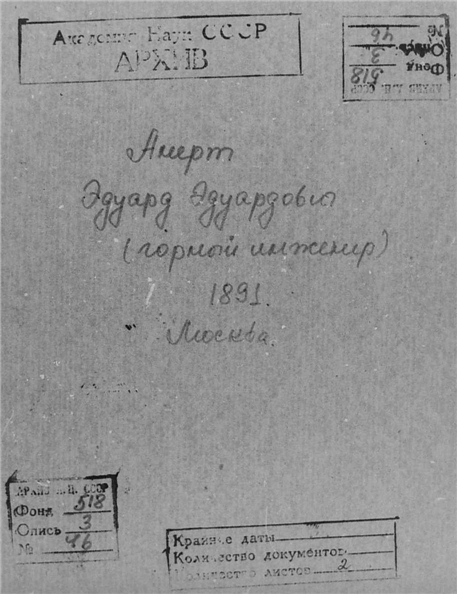 Академия Наук СССР
АРХИВ
АРХИВ АКАД. НАУК СССР
Фонд 518
Опись 3
№ 46
Анерт
Эдуард Эдуардович
(горный инженер)
1891.
Москва.
АРХИВ А.Н. СССР
Фонд 518
Опись 3
№ 46
Крайние даты
Количество документов
Количество листов 2